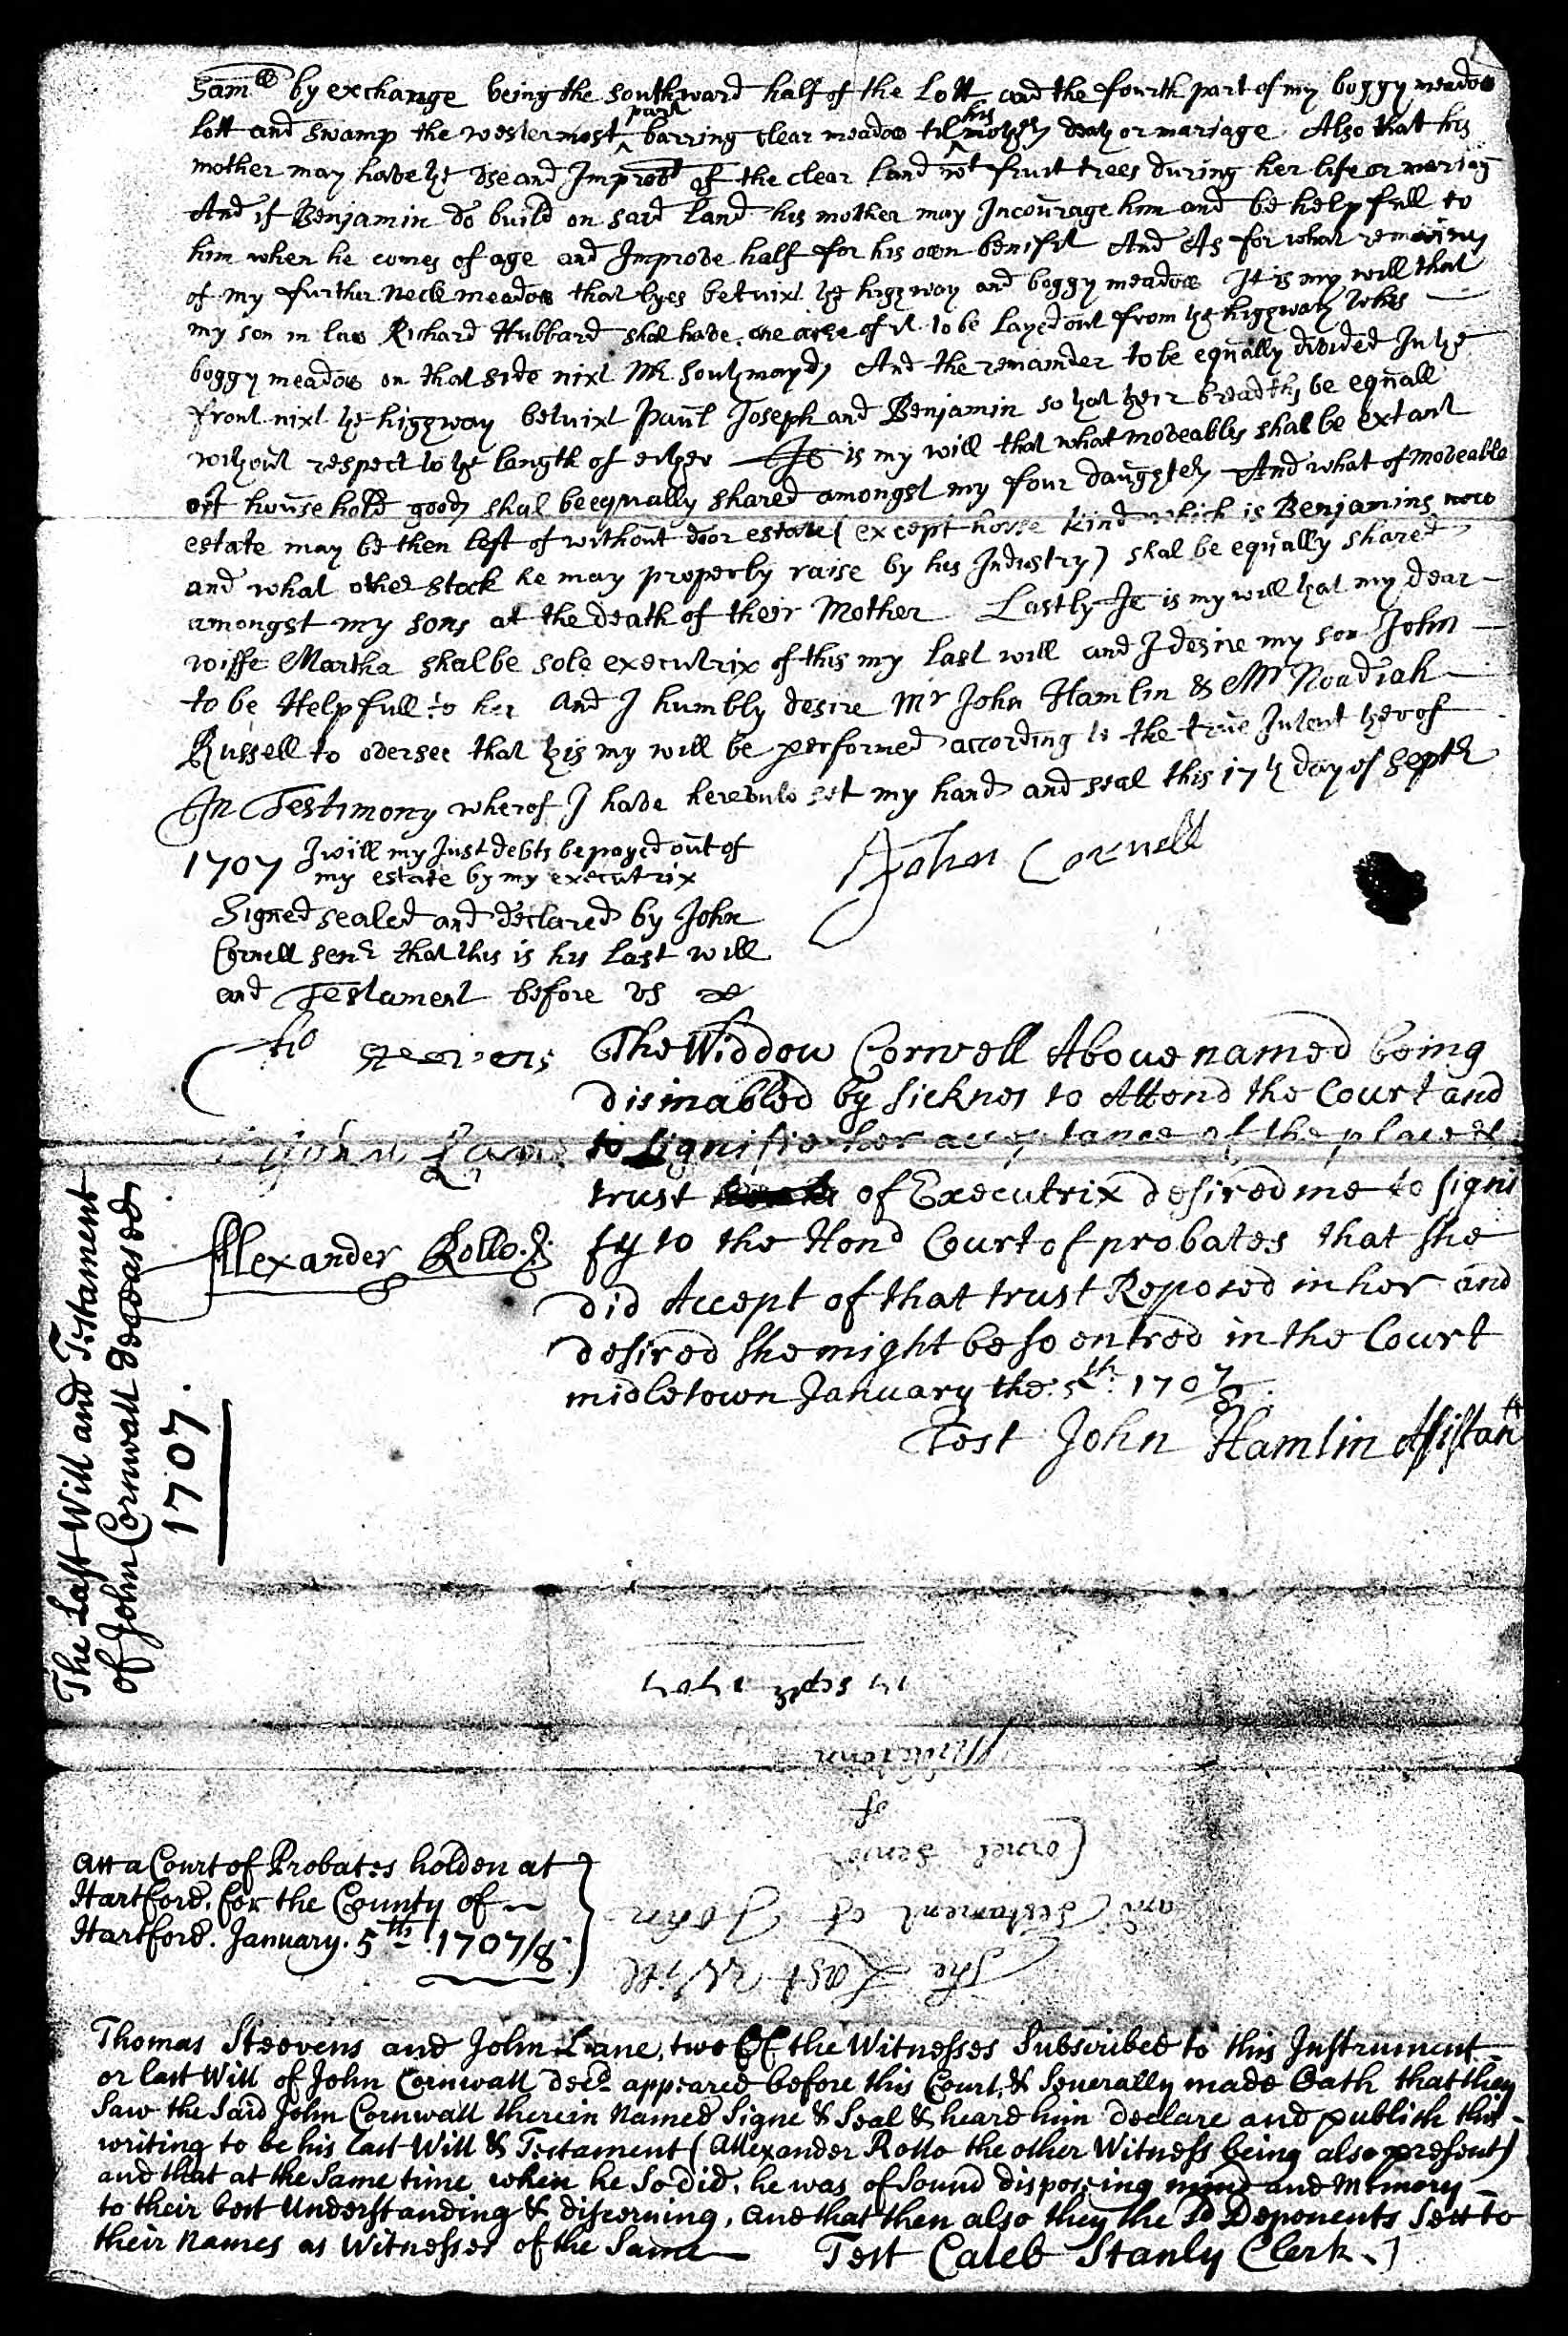 Samll by exchange being the southward half of the Lott and the fourth part of my boggy meadow
Lott and swamp the westermost part barring clear meadow til his mother death or mariage Also that his
mother may have the Use and Improvt of the clear Land not fruit trees during her life or mariag
And if Benjamin do build on said Land his mother may Incourage him and be helpfull to
him when he comes of age and Improve half for his own benifit And As for what remaines
of my further neck meadow that lyes betwixt the highway and boggy meadow It is my will that
my son in law Richard Hubbard shal have one acre of it to be Layed out from the highway to his
boggy meadow on that side nixt Mr Southmayds And the remainder to be equally divided In the
front nixt the highway betwixt Paul Joseph and Benjamin so that their breadths be equall
without respect to the length of either It is my will that what moveables shal be extant
of household goods shal be equally shared amongst my four daughters And what of moveable
estate may be then left of without door estate (except horse kind which is Benjamins now
and what other stock he may properly raise by his Industry) shal be equally shared
amongst my sons at the death of their Mother Lastly It is my will that my dear
wiffe Martha shal be sole executrix of this my last will and I desire my son John
to be Helpfull to her And I humbly desire Mr John Hamlin & Mr Noadiah
Russell to oversee that this my will be performed according to the true Intent therof
In Testimony wherof I have hereunto set my hand and seal this 17th day of Septr
1707 I will my Just debts be payed out of
my estate by my executrix
John Cornell
Signed sealed and declared by John
Cornell senr that this is his last will
and Testament before us
Tho Steevens
John Lane
Alexander Rollo
The Widdow Cornwell Above named being
disinabled by sicknes to Attend the Court and
to signifie her acceptance of the place &
trust of Executrix desired me to signi
fy to the Hond Court of probates that she
did Accept of that trust Reposed in her and
desired she might be so entred in the Court
midletown January the 5th 1707/8
Test John Hamlin Assistant
The Last Will and Testament
of John Cornwall deceased
1707.
The Last Will
and Testament of John
Cornel Senior
of
Middletown
17 Septr 1707
Att a Court of Probates holden at
Hartford, for the County of
Hartford. January. 5th 1707/8
Thomas Steevens and John Lane, two Of the Witnesses Subscribed to this Instrument
or last Will of John Cornwall decd appeared before this Court, & Severally made Oath that they
Saw the said John Cornwall therein Named Signe & Seal & heard him declare and publish this
writing to be his last Will & Testament (Allexander Rollo the other Witness being also present)
and that at the Same time when he So did, he was of Sound disposeing mind and Memory
to their best Understanding & discerning, and that then also they the sd Deponents Sett to
their Names as Witnesses of the Same Test Caleb Stanly Clerk